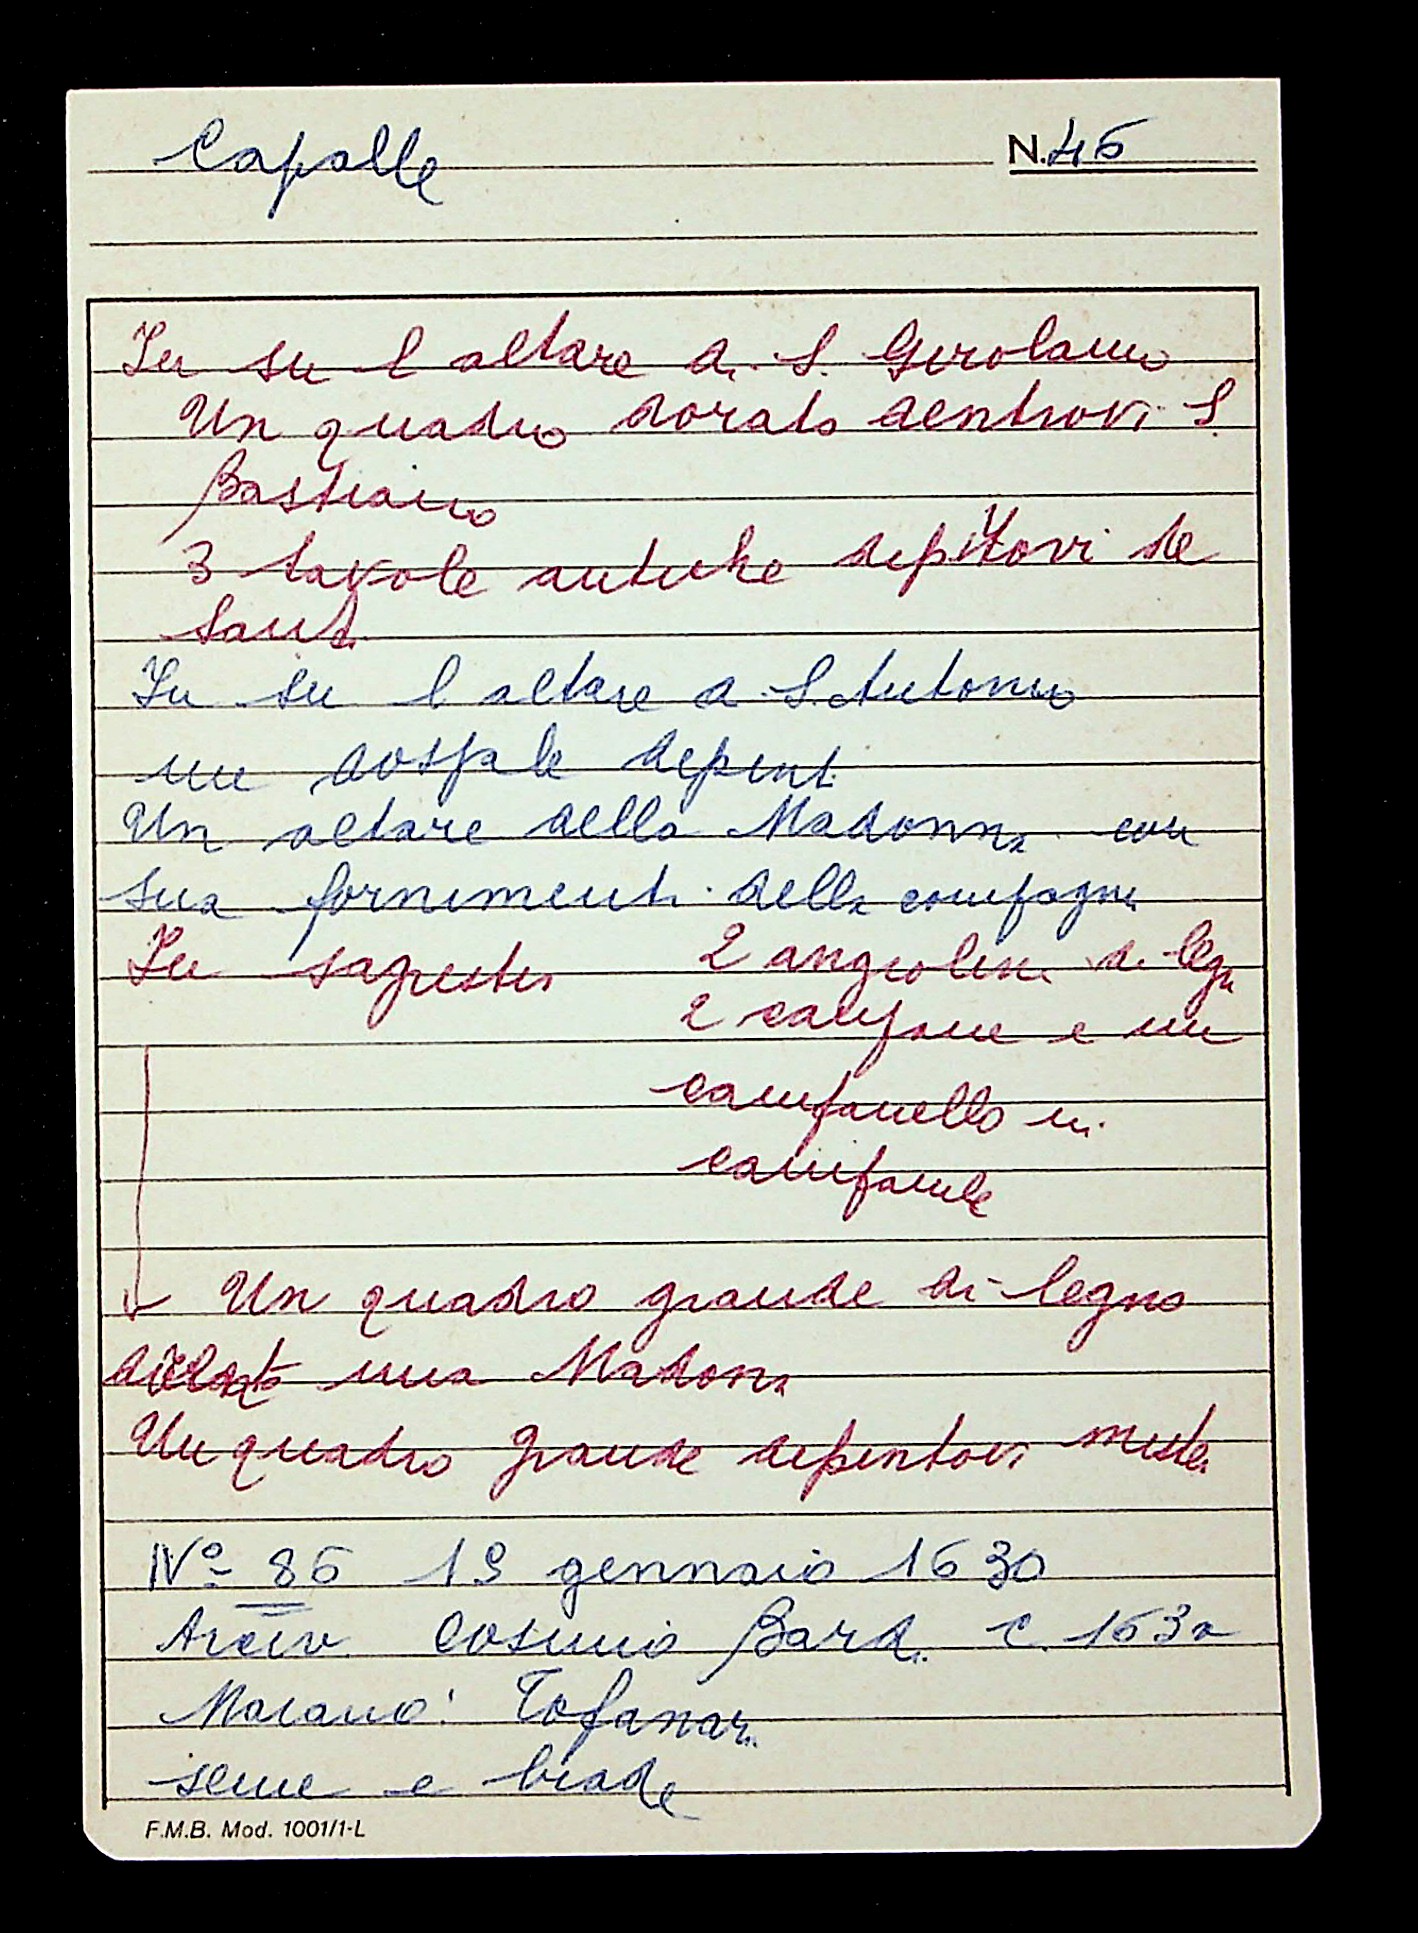 Capalle N. 46
In su l altare di S. Girolamo
Un quadro dorato dentrovi S.
Bastiano
3 tavole antiche depitovi de
Santi
In su l altare di S. Antonio
un dossale depint.
Un altare della Madonna con
sua fornimenti della compagni
In sagrestia 2 angiolini di legn
2 campane e un
campanello in
campanile
Un quadro grande di legno
una Madona
Un quadro grande depintovi
Nº 86 19 gennaio 1630
Arciv. Cosimo Bard. c. 163r
Tofanari
seme e biade
F.M.B. Mod. 1001/1-L